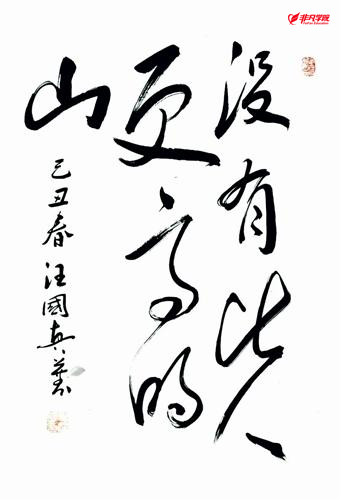 非凡学院
没有比人
更高的
山
己丑春 汪國真